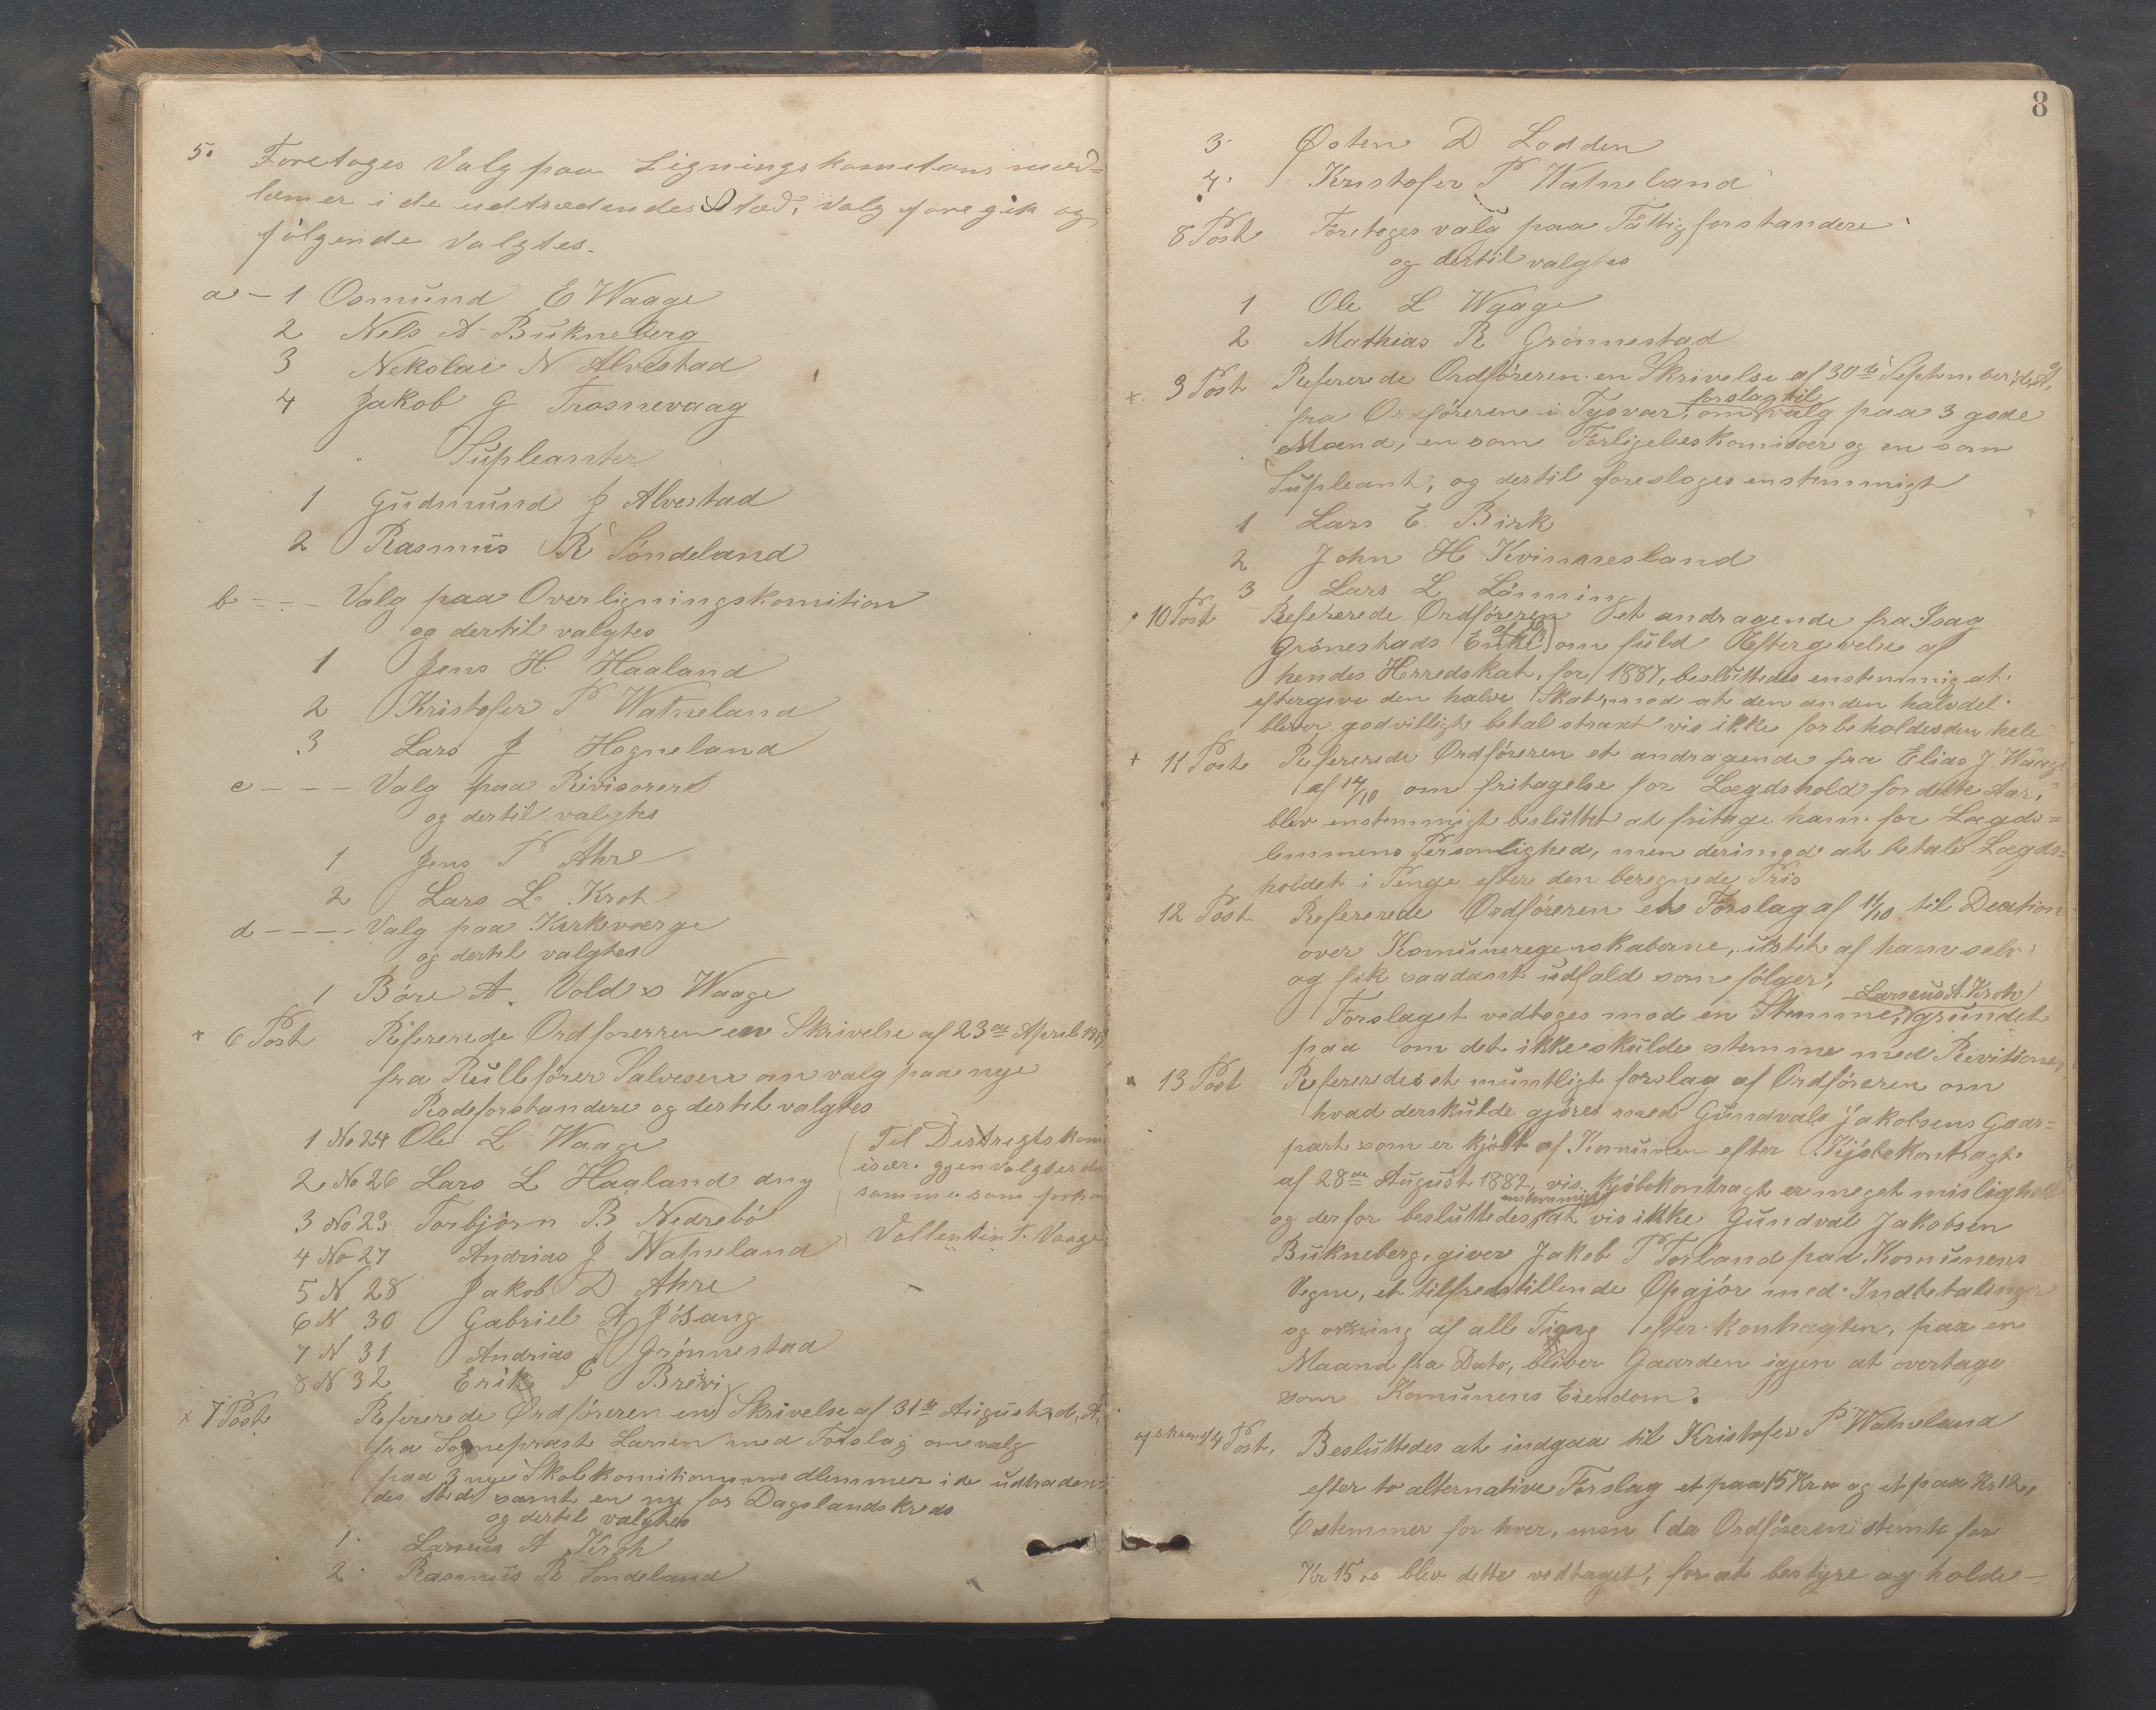 5. Foretoges Valg paa Ligningskometens med=
lemer i de udtrædendes Stæd, Valg foregik og
følgende Valgtes.
a – 1 Osmund E Waage
2 Nels A Bukneberg
3 Nekolai N Alvestad
4 Jakob G Trosnevaag
Supleanter
1 Gudmund J Alvestad
2 Rasmus R Søndeland
b – – – Valg paa Overligningskomition
og dertil valgtes
1 Jens H Haaland
2 Kristofer P Watneland
3 Lars J Hogneland
c – – – Valg paa Rivisorere
og dertil valgtes
1 Jens P Ahre
2 Lars L. Kroh
d – – – – Valg paa Kirkeværge
og dertil valgtes
1 Båre A. Vold s Waage
x 6 Post Refererede Ordforerren en Skrivelse af 23de April
fra Rullefører Salvesen om valg paa nye
Rodeforstandere og dertil valgtes
1 No 24 Ole L Waage
2 No 26 Lars L Haaland dny
3 No 23 Torbjørn B Nedrebö
4 No 27 Andrias J Watneland
5 N 28 Jakob D Ahre
6 N 30 Gabriel A Jösang
7 N 31 Andrias S Grönnestad
8 N 32 Erik P Brekvi
Til Distregts kom
især. gjenvalgtes de
samme som forhen
Vollentin T. Vaage
x 7 Post Refererede Ordføreren en Skrivelse af 31te August d. A.
fra Sogneprest Larsen med Forslag om valg
paa 3 nye Skolekomitionsmedlemmer i de udtræden=
des Sted samt en ny for Dagslandskreds
og dertil valgtes
1. Larseus A Kroh
2. Rasmus R Søndeland
8
3. Østen D Lodden
4. Kristofer P Watneland
8 Post Foretoges valg paa Fattigforstandere
og dertil valgtes
1 Ole L Waage
2 Mathias R Grönnestad
x 9 Post Refererede Ordføreren en Skrivelse af 30te September d. A,
fra Ordføreren i Tysvær, om forslag til valg paa 3 gode
Mænd, en som Forligelseskomisær og en som
Supleant, og dertil foresloges enstemmigt
1 Lars E. Birk
2 John H Kvinnesland
3 Lars L Lönning
10 Post Refererede Ordføreren et andragende fra Isag
Grönestads Enke om fuld Eftergivelse af
hendes Herredskat, for 1887, besluttedes enstemmig at
eftergive den halve Skat, mod at den anden halvdel
bliver godvilligt betal strax vis ikke forbeholdes den hele
+ 11 Post Refererede Ordføreren et andragende fra Elias J. Waage
af 14/10 om fritagelse for Lægdshold for dette Aar,
blev enstemmigt besluttet at fritage ham for Lægds=
lemmens Personlighed, men derimod at betale Lægds=
holdet i Penge efter den beregnede Pris
12 Post Refererede Ordføreren et Forslag af 11/10 til Deation
over Komuneregenskaberne, utstét af ham selv
og fik saadant udfald som følger,
Forslaget vedtoges mod en Stemme, Larseus A. Kroh grundet
paa om det ikke skulde stemme med Rivitionen
x 13 Post Refereredes et muntligt forslag af Ordføreren om
hvad der skulde gjøres med Gundvald Jakobsens Gaar=
part som er kjøbt af Komunen efter Kjøbekontragt
af 28de August 1882, vis kjøbekontragt er meget misligholt
og derfor besluttedes, enstemmigt at vis ikke Gundval Jakobsen
Bukneberg, giver Jakob P Torland paa Komunens
Vegne, et tilfredstillende Opgjör med Indbetalinger
og ordning af alle Ting efter kontragten, paa en
Maand fra Dato, bliver Gaarden igjen at overtage
som Komunens Eiendom.
14 Post, Besluttedes at indgaa til Kristofer P Watneland
efter to alternative Forslag et paa 15 Kr oo og et paa Kr 12,
6 stemmer for hver, men da Ordføreren stemte for
Kr 15.oo blev dette vedtaget, for at bestyre og holde –